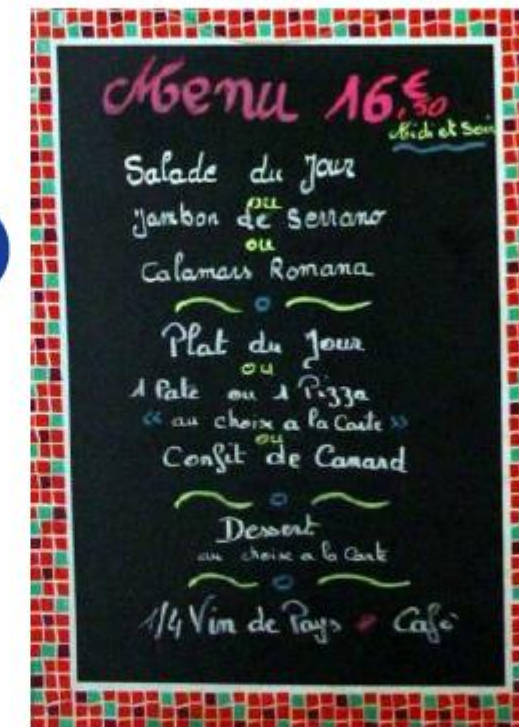 Menu 16,€50
Midi et Soir
Salade du Jour
ou
Jambon de Serrano
ou
Calamars Romana
Plat du Jour
ou
1 Pate ou 1 Pizza
« au choix a la Carte »
ou
Confit de Canard
Dessert
au choix a la Carte
1/4 Vin de Pays • Café